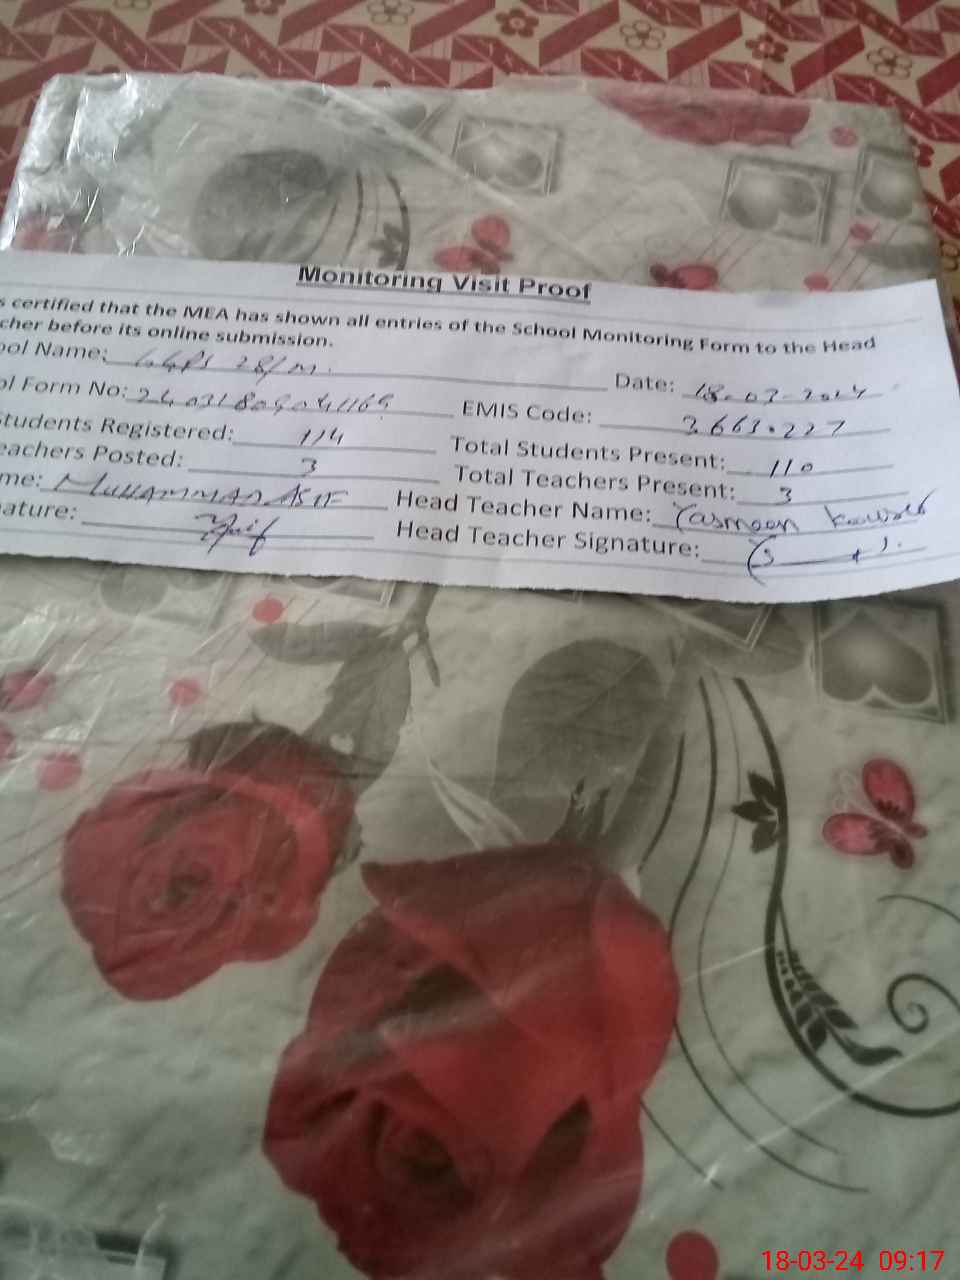 Monitoring Visit Proof
s certified that the MEA has shown all entries of the School Monitoring Form to the Head
cher before its online submission.
ool Name: GGPS 28/M. Date: 18-03-2024
ol Form No: EMIS Code: 3663.227
Students Registered: 114 Total Students Present: 110
eachers Posted: 3 Total Teachers Present: 3
me: MUHAMMAD ASIF Head Teacher Name: Yasmeen Kousar
nature: Head Teacher Signature:
18-03-24 09:17